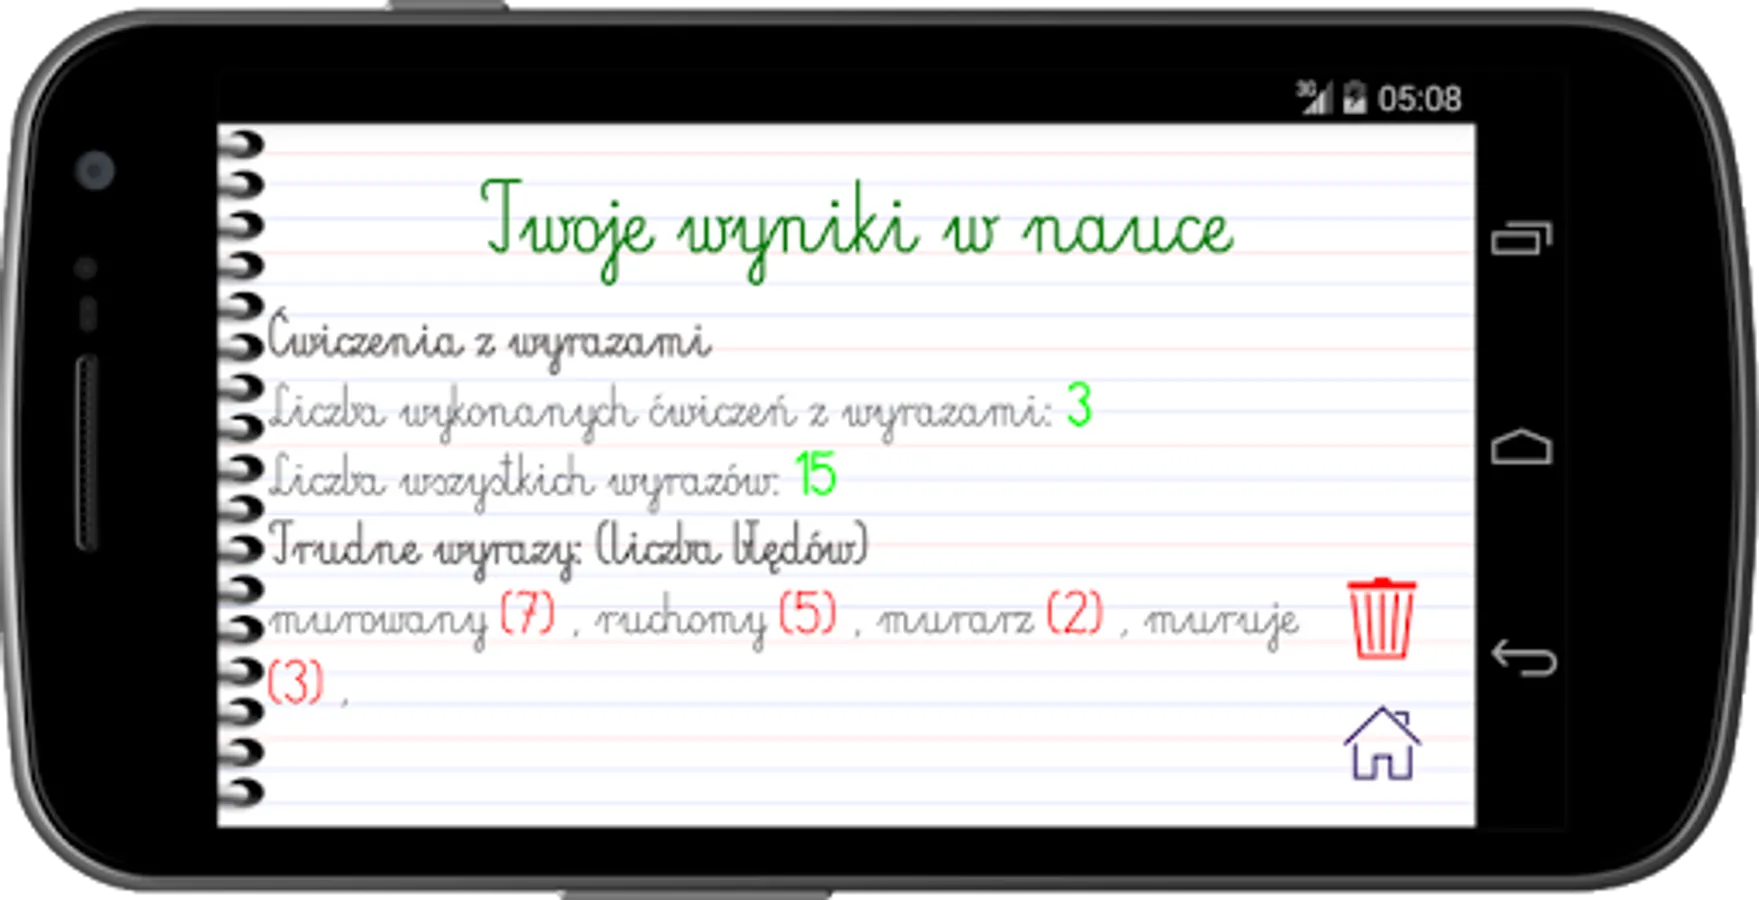 3G 05:08
Twoje wyniki w nauce
Ćwiczenia z wyrazami
Liczba wykonanych ćwiczeń z wyrazami: 3
Liczba wszystkich wyrazów: 15
Trudne wyrazy: (liczba błędów)
murowany (7) , ruchomy (5) , murarz (2) , muruje
(3) ,